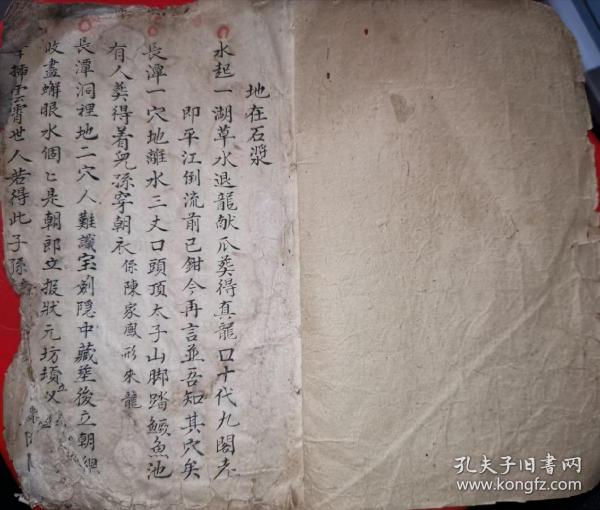 地在石漿
水起一湖草水退龍献爪葬得真龍口十代九閣老
即平江倒流前已鉗今再言並吾知其穴矣
長潭一穴地離水三丈口頭頂太子山脚踏鱖魚池
有人葬得着兒孫穿朝衣係陳家鳳形朱龍
長潭洞裡地二穴人難識宝劍隱中藏垂後立朝
收盡蠏眼水個〻是朝郎立报狀元坊墳
插雲霄世人若得此子孫
孔夫子旧書网
www.kongfz.com